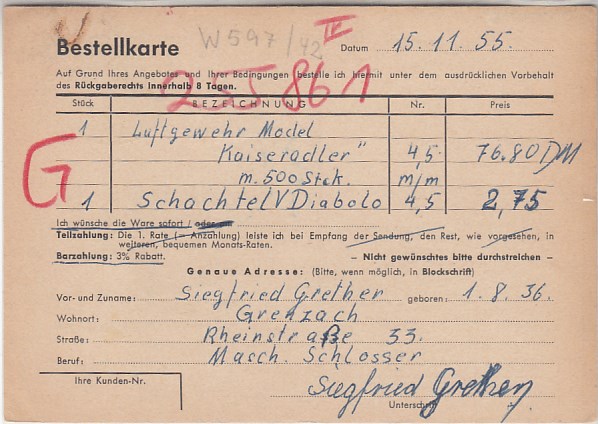 Bestellkarte W597/42 IV Datum 15.11.55.
Auf Grund Ihres Angebotes und Ihrer Bedingungen bestelle ich hiermit unter dem ausdrücklichen Vorbehalt
des Rückgaberechts innerhalb 8 Tagen.
255861
Stück BEZEICHNUNG Nr. Preis
1 Luftgewehr Model
Kaiseradler" 4,5 76.80 DM
G m. 500 Stck. m/m
1 Schachtel V Diabolo 4,5 2,75
Ich wünsche die Ware sofort /
Teilzahlung: Die 1. Rate (– Anzahlung) leiste ich bei Empfang der Sendung, den Rest, wie vorgesehen, in
weiteren, bequemen Monats-Raten.
Barzahlung: 3% Rabatt. – Nicht gewünschtes bitte durchstreichen –
Genaue Adresse: (Bitte, wenn möglich, in Blockschrift)
Vor- und Zuname: Siegfried Grether geboren: 1.8.36.
Wohnort: Grenzach
Straße: Rheinstraße 33.
Beruf: Masch. Schlosser
Ihre Kunden-Nr.
Siegfried Grether
Unterschrift